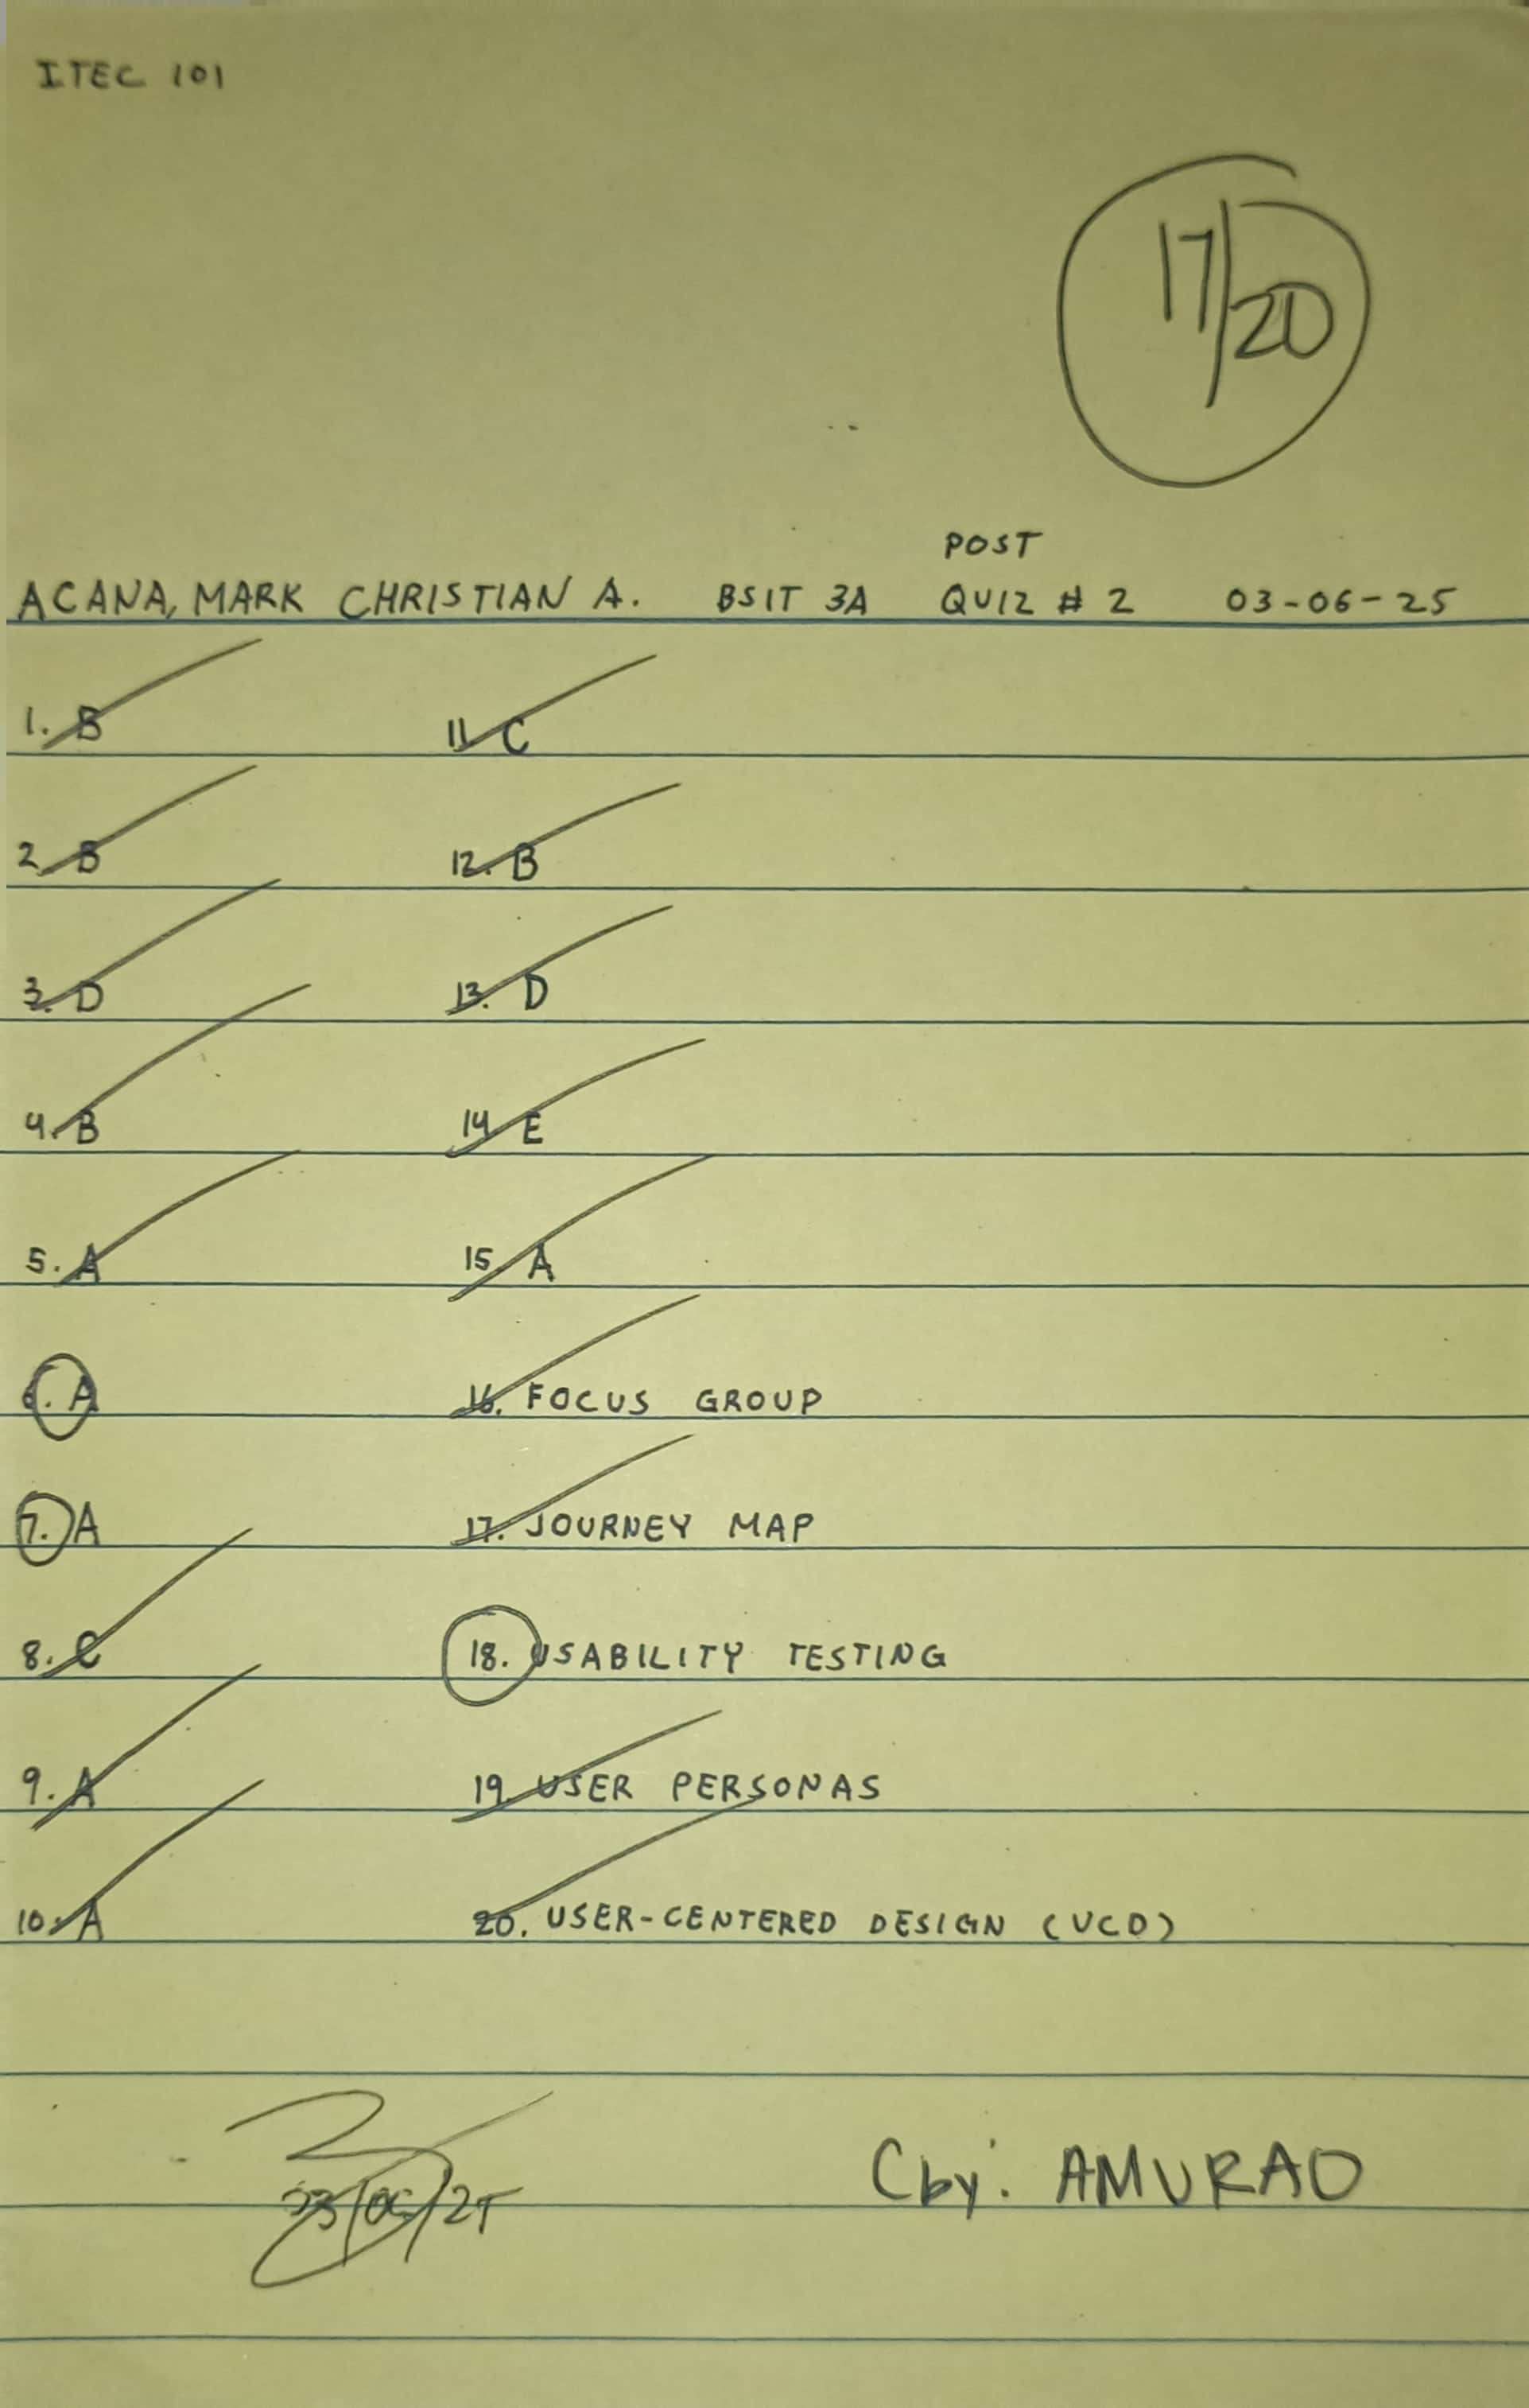 ITEC 101
17/20
POST
ACANA, MARK CHRISTIAN A. BSIT 3A QUIZ # 2 03-06-25
1. B
2. B
3. D
4. B
5. A
6. A
7. A
8. C
9. A
10. A
11. C
12. B
13. D
14. E
15. A
16. FOCUS GROUP
17. JOURNEY MAP
18. USABILITY TESTING
19. USER PERSONAS
20. USER-CENTERED DESIGN (UCD)
Cby: AMURAO